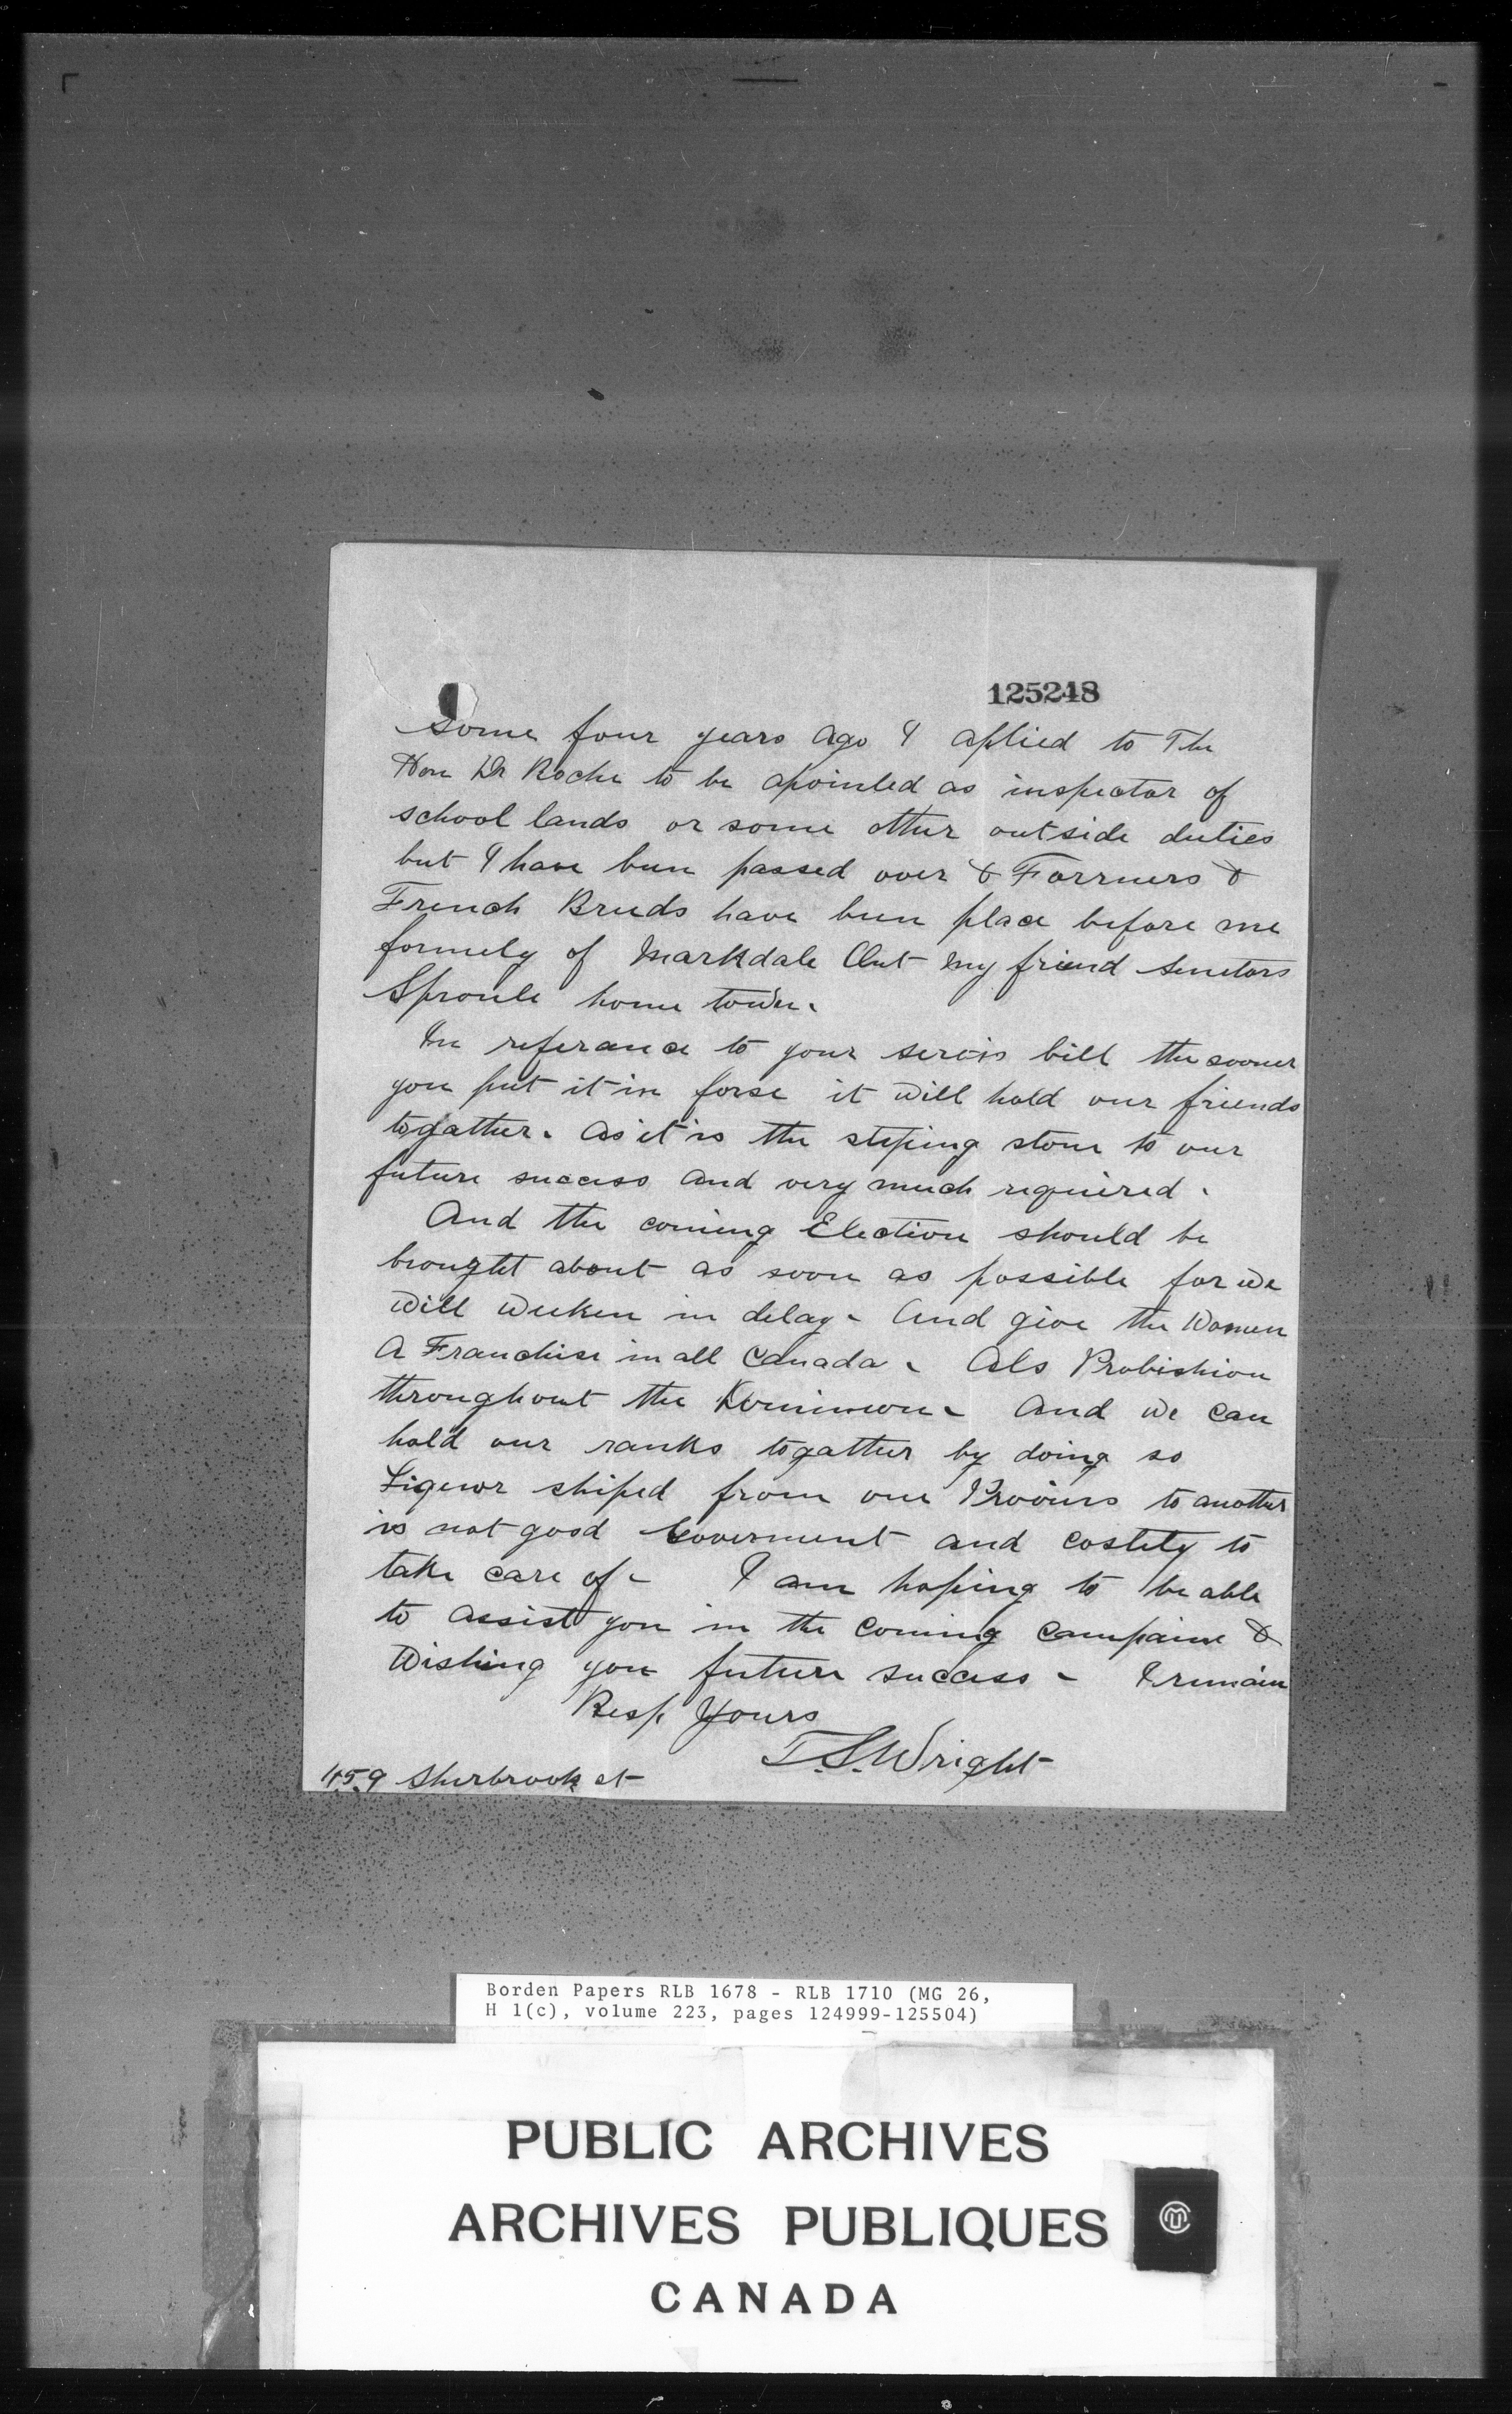 125248
Some four years ago I aplied to The
Hon Dr Roche to be apointed as inspector of
school lands or some other outside duties
but I have been passed over & Forrners &
French Breeds have been place before me
formely of Markdale Ont my friend Senetors
Sproule home town.
In referance to your servis bill the sooner
you put it in forse it will hold our friends
togather. as it is the steping stone to our
future success and very much required.
And the coming Election should be
brought about as soon as possible for we
will weeken in delay. And give the Women
A Franchise in all Canada. Als Probishion
throughout the Dominion. And we can
hold our ranks togather by doing so
Liquor shiped from one Provins to another
is not good Goverment and costly to
take care of. I am hoping to be able
to assist you in the coming campaine &
Wishing you future success - I remain
Resp Yours
T.S. Wright
459 Sherbrook st
Borden Papers RLB 1678 - RLB 1710 (MG 26,
H 1(c), volume 223, pages 124999-125504)
PUBLIC ARCHIVES
ARCHIVES PUBLIQUES
CANADA